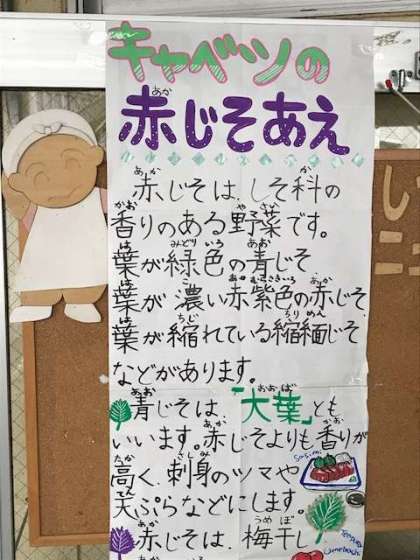 キャベツの
赤じそあえ
赤じそは、しそ科の
香りのある野菜です。
葉が緑色の青じそ
葉が濃い赤紫色の赤じそ、
葉が縮れている縮緬じそ
などがあります。
青じそは、「大葉」とも
いいます。赤じそよりも香りが
高く、刺身のツマや
天ぷらなどにします。
赤じそは、梅干し